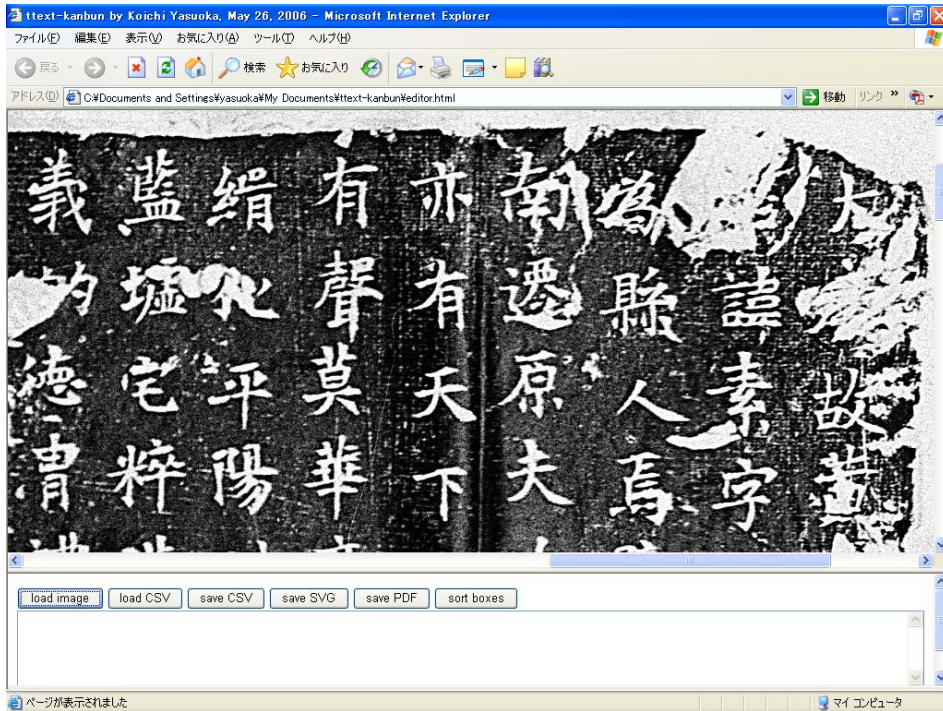 ttext-kanbun by Koichi Yasuoka, May 26, 2006 - Microsoft Internet Explorer
ファイル(F) 編集(E) 表示(V) お気に入り(A) ツール(T) ヘルプ(H)
戻る 検索 お気に入り
アドレス(D) C:¥Documents and Settings¥yasuoka¥My Documents¥ttext-kanbun¥editor.html 移動 リンク »
大故
諱素字
為縣人焉
南遷原夫
亦有天下
有聲莫華
縉化平陽
藍墟宅粹
義的德胄
load image load CSV save CSV save SVG save PDF sort boxes
ページが表示されました マイ コンピュータ